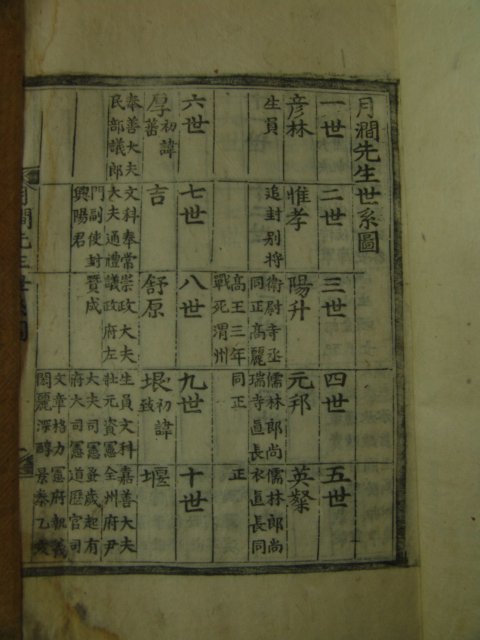 月澗先生世系圖
一世
彦林
生員
二世
惟孝
追封別將
三世
陽升
衛尉寺丞
同正高麗
高王三年
戰死渭州
四世
元邦
儒林郎尚
瑞寺直長
同正
五世
英粲
儒林郎尚
衣直長同
正
六世
厚初諱
善
奉善大夫
民部議郎
七世
吉
文科奉常
大夫通禮
門副使封
興陽君
八世
舒原
崇政大夫
議政府左
贊成
九世
垠初諱
致
生員文科
壯元資憲
大夫司憲
府大司憲
文章格力
閎麗渾醇
十世
堰
嘉善大夫
全州府尹
歲起有
道歷官司
憲府執義
景泰乙亥